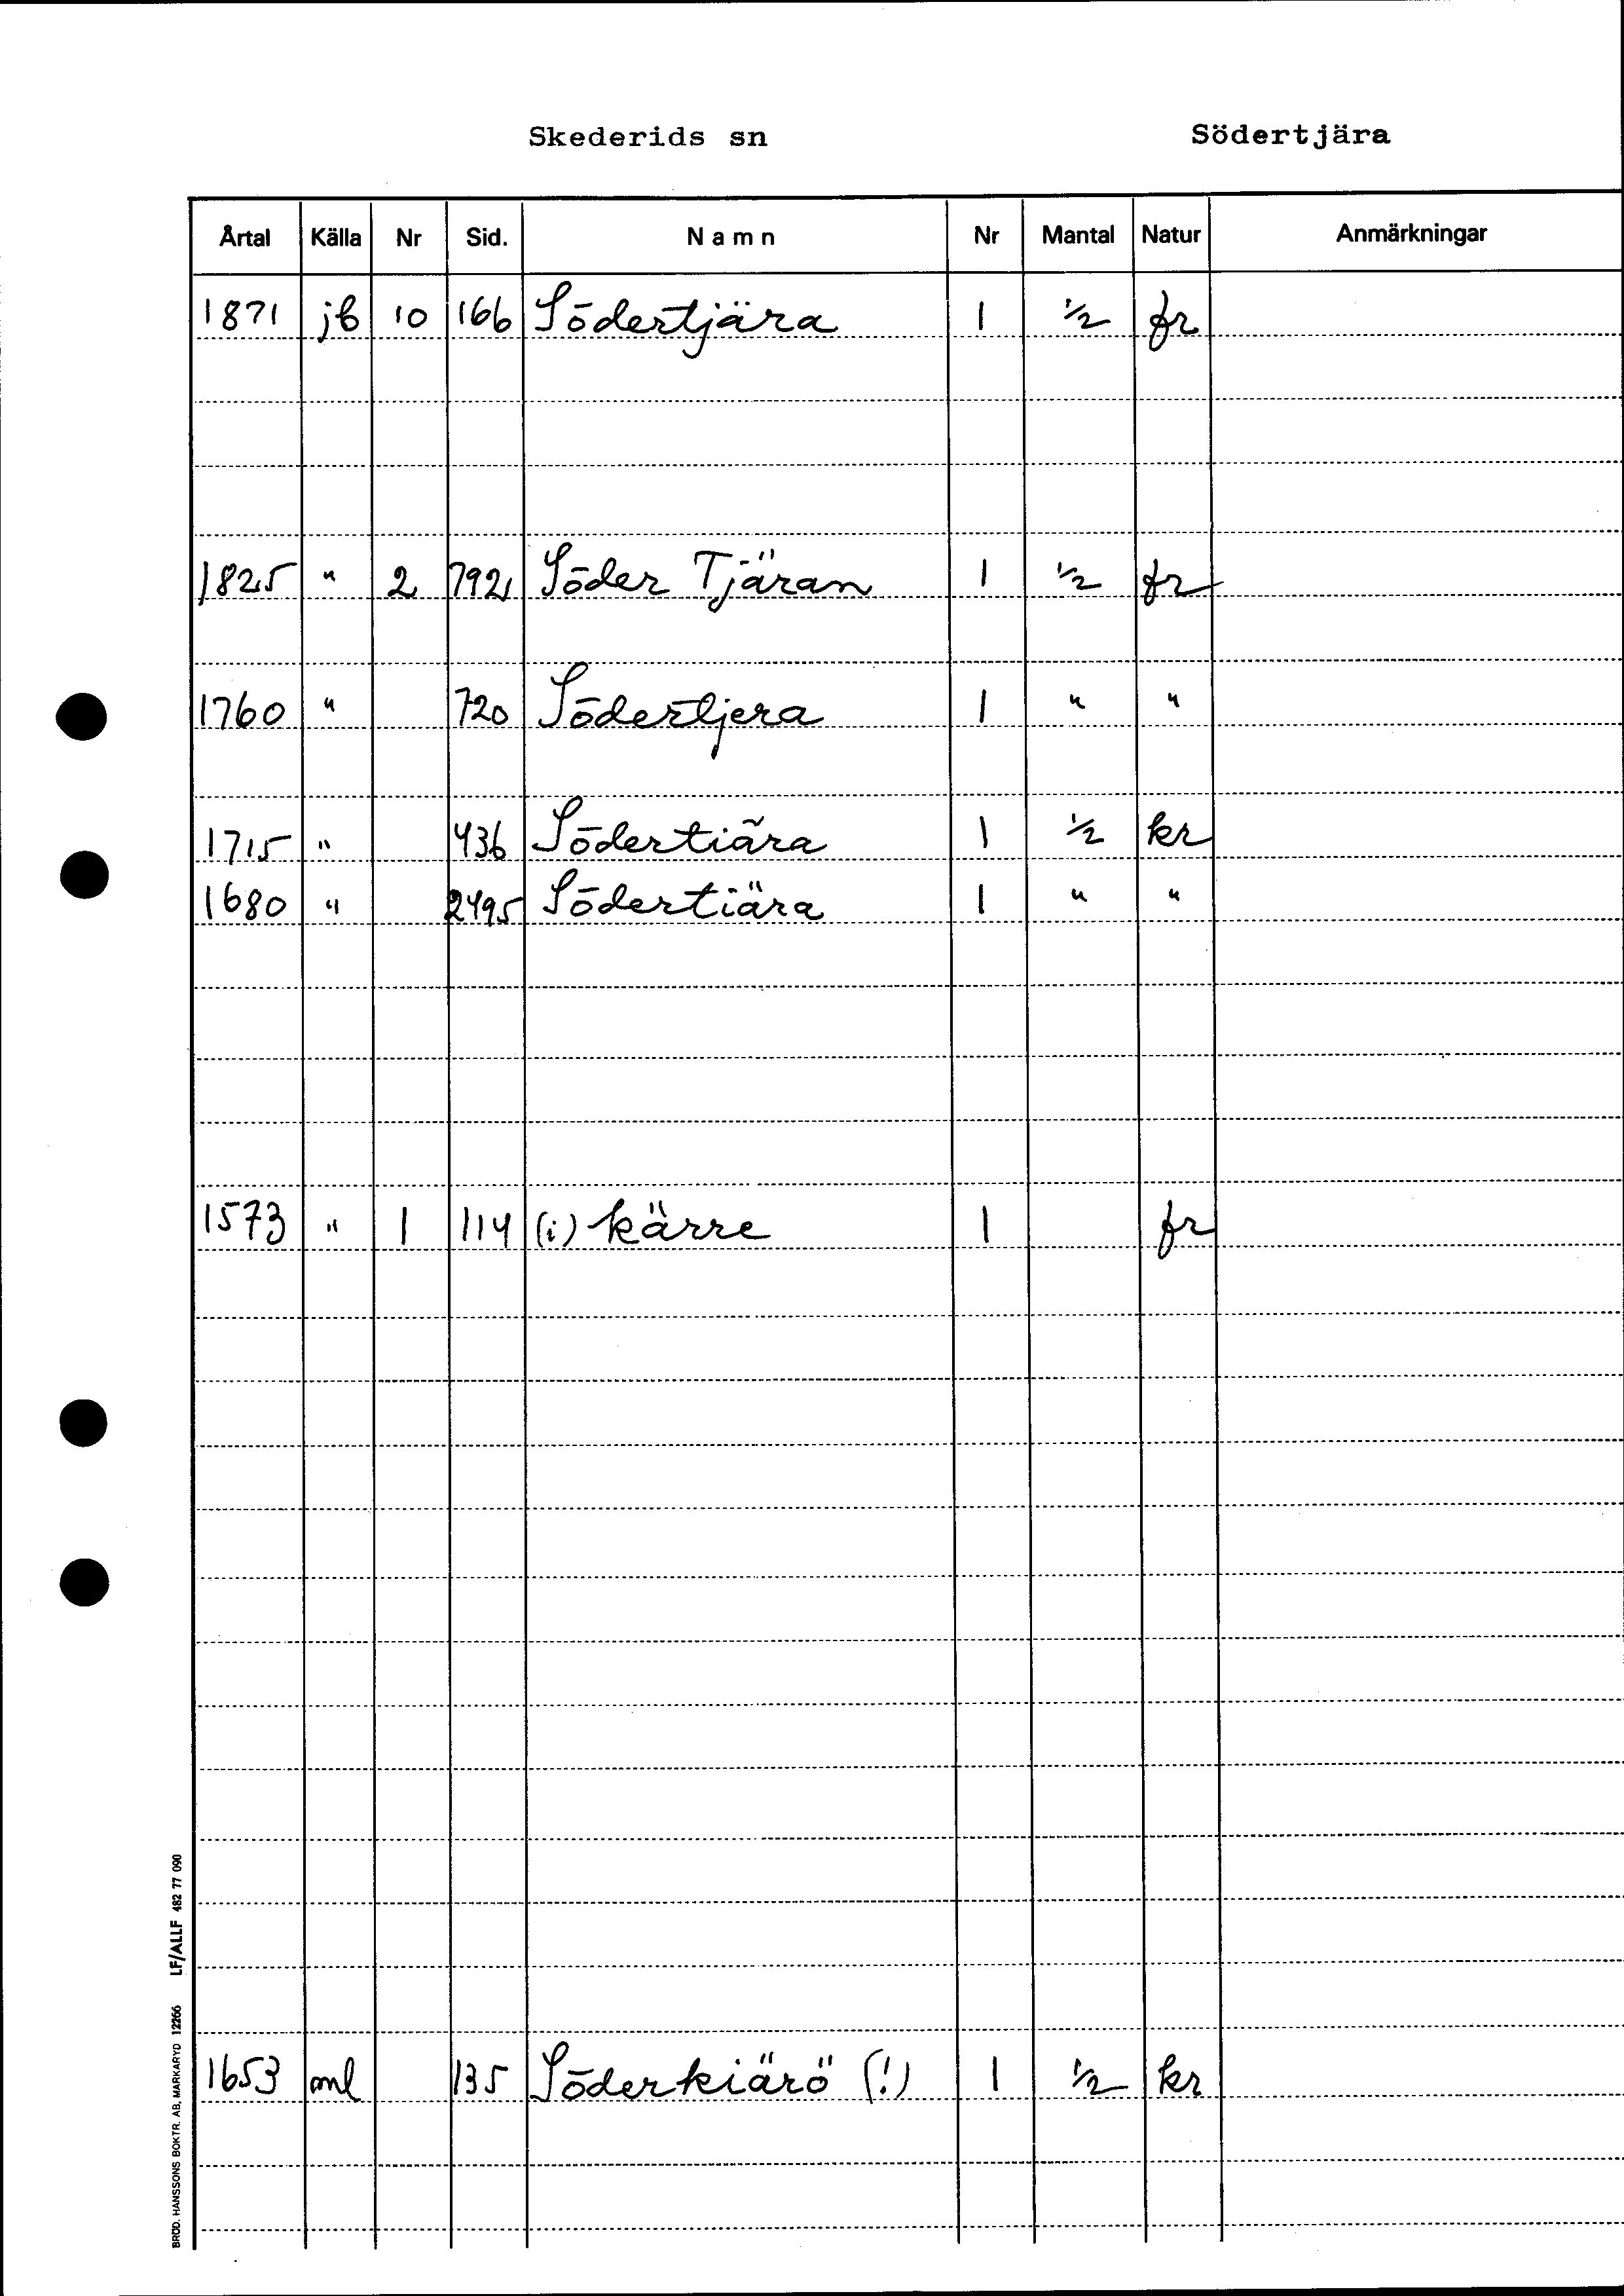 Skederids sn Södertjära
Årtal Källa Nr Sid. Namn Nr Mantal Natur Anmärkningar
1871 jb 10 166 Södertjära 1 1/2 fr
1825 " 2 792 Söder Tjäran 1 1/2 fr
1760 " 720 Södertjera 1 " "
1715 " 436 Södertiära 1 1/2 kr
1680 " 2495 Södertiära 1 " "
1573 " 1 114 (i) kärre 1 fr
1653 ml 135 Söderkiärö (!) 1 1/2 kr
BRÖD. HANSSONS BOKTR. AB, MARKARYD 12266 LF/ALLF 482 77 090